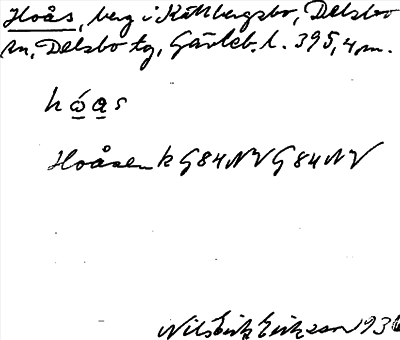 Hoås, berg i Källbergsbo, Delsbo
sn, Delsbo tg, Gävleb. l. 395,4 m.
hóas
Hoåsen k G84NV G84NV
Nils Erik Eriksson 193